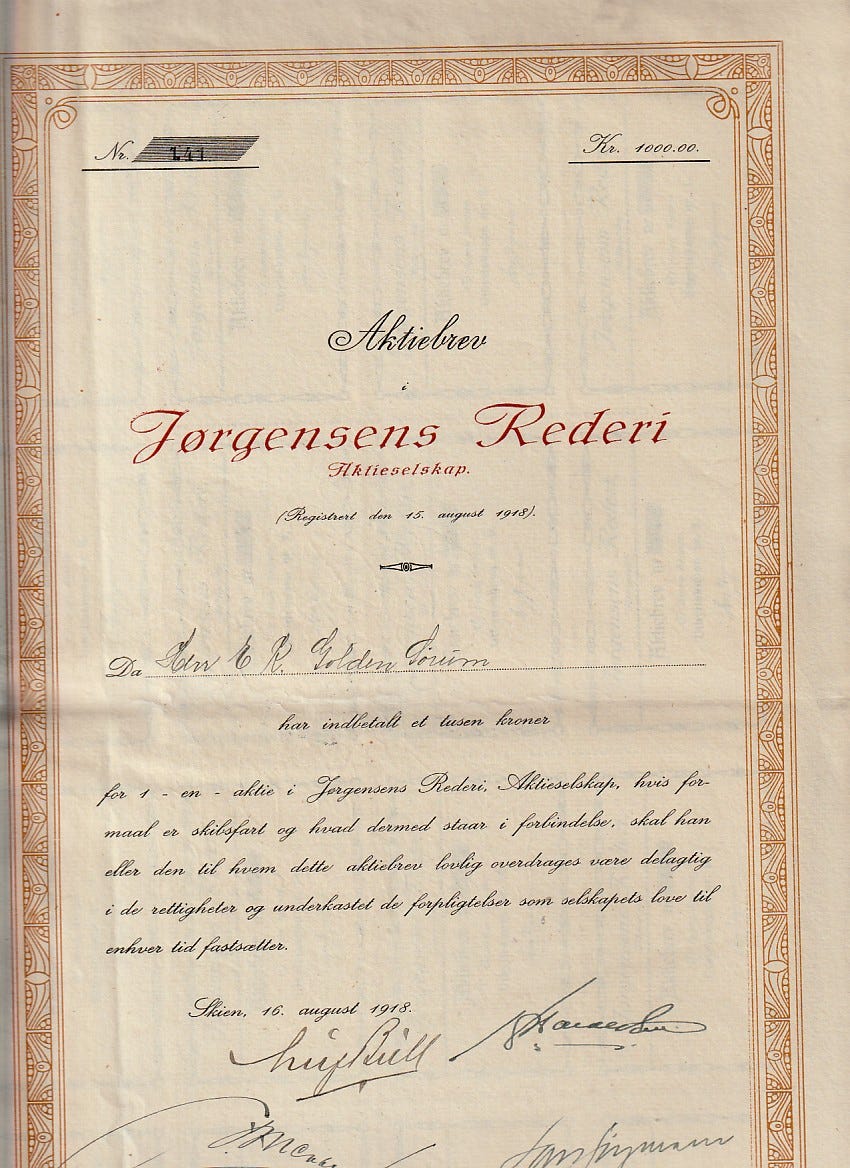 Nr. 141
Kr. 1000.00.
Aktiebrev
i
Jørgensens Rederi
Aktieselskap.
(Registrert den 15. august 1918).
Da Herr E K. Golden Sørum
har indbetalt et tusen kroner
for 1 - en - aktie i Jørgensens Rederi, Aktieselskap, hvis for-
maal er skibsfart og hvad dermed staar i forbindelse, skal han
eller den til hvem dette aktiebrev lovlig overdrages være delagtig
i de rettigheter og underkastet de forpligtelser som selskapets love til
enhver tid fastsætter.
Skien, 16. august 1918.